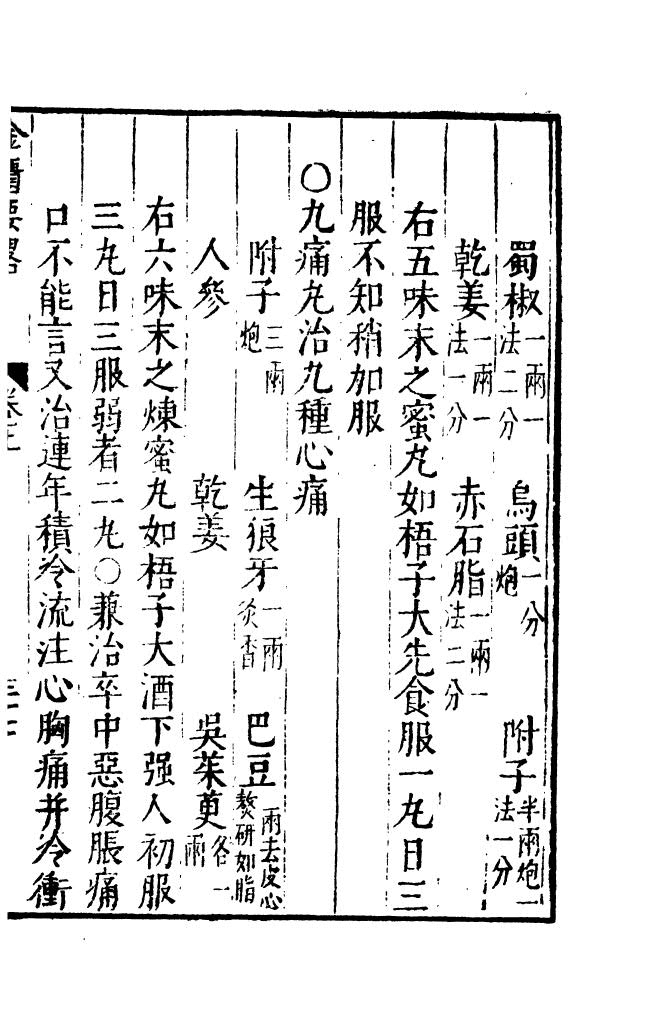 蜀椒一兩一法二分　烏頭一分炮　附子半兩炮一法一分
乾姜一兩一法一分　赤石脂一兩一法二分
右五味末之蜜丸如梧子大先食服一丸日三
服不知稍加服
〇九痛丸治九種心痛
附子三兩炮　生狼牙一兩炙香　巴豆一兩去皮心熬研如脂
人參　乾姜　吳茱萸各一兩
右六味末之煉蜜丸如梧子大酒下强人初服
三丸日三服弱者二丸〇兼治卒中惡腹脹痛
口不能言又治連年積冷流注心胸痛并冷衝
金匱要畧　卷上